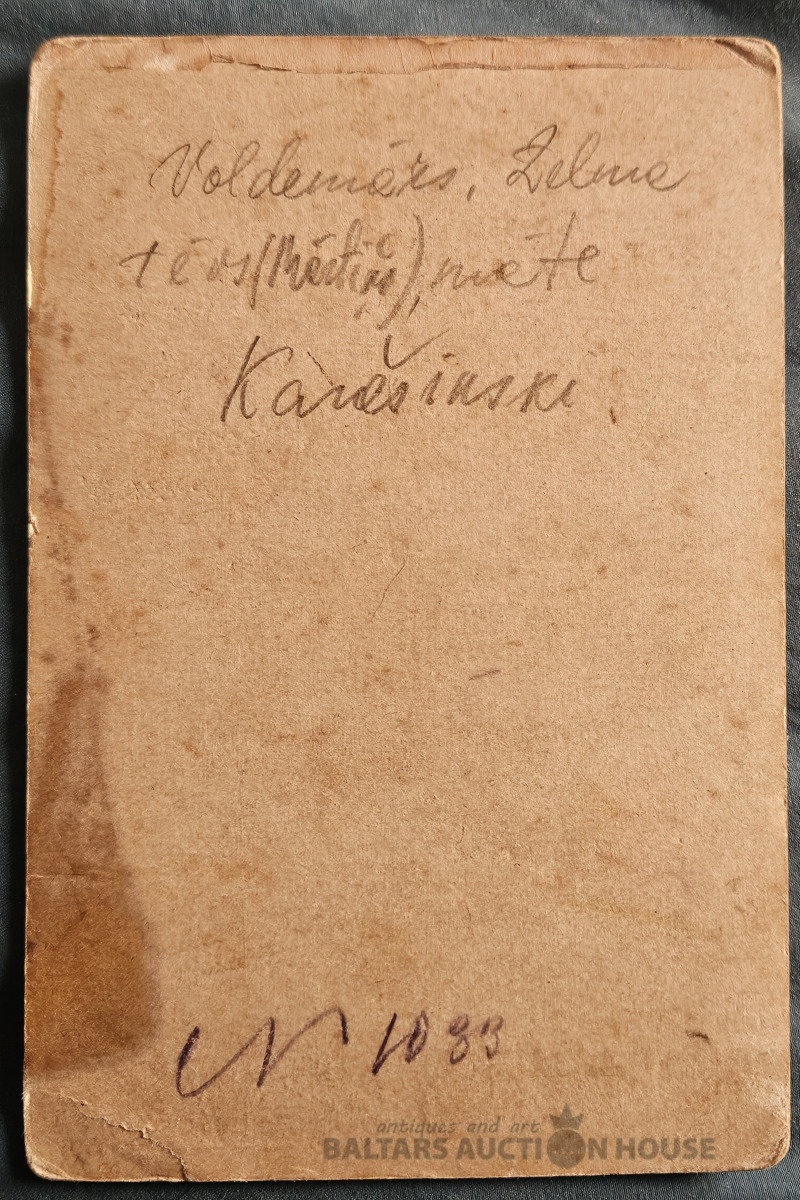 Voldemārs, Zelma
tēvs (Mārtiņš), māte
N 1083
antiques and art
BALTARS AUCTION HOUSE